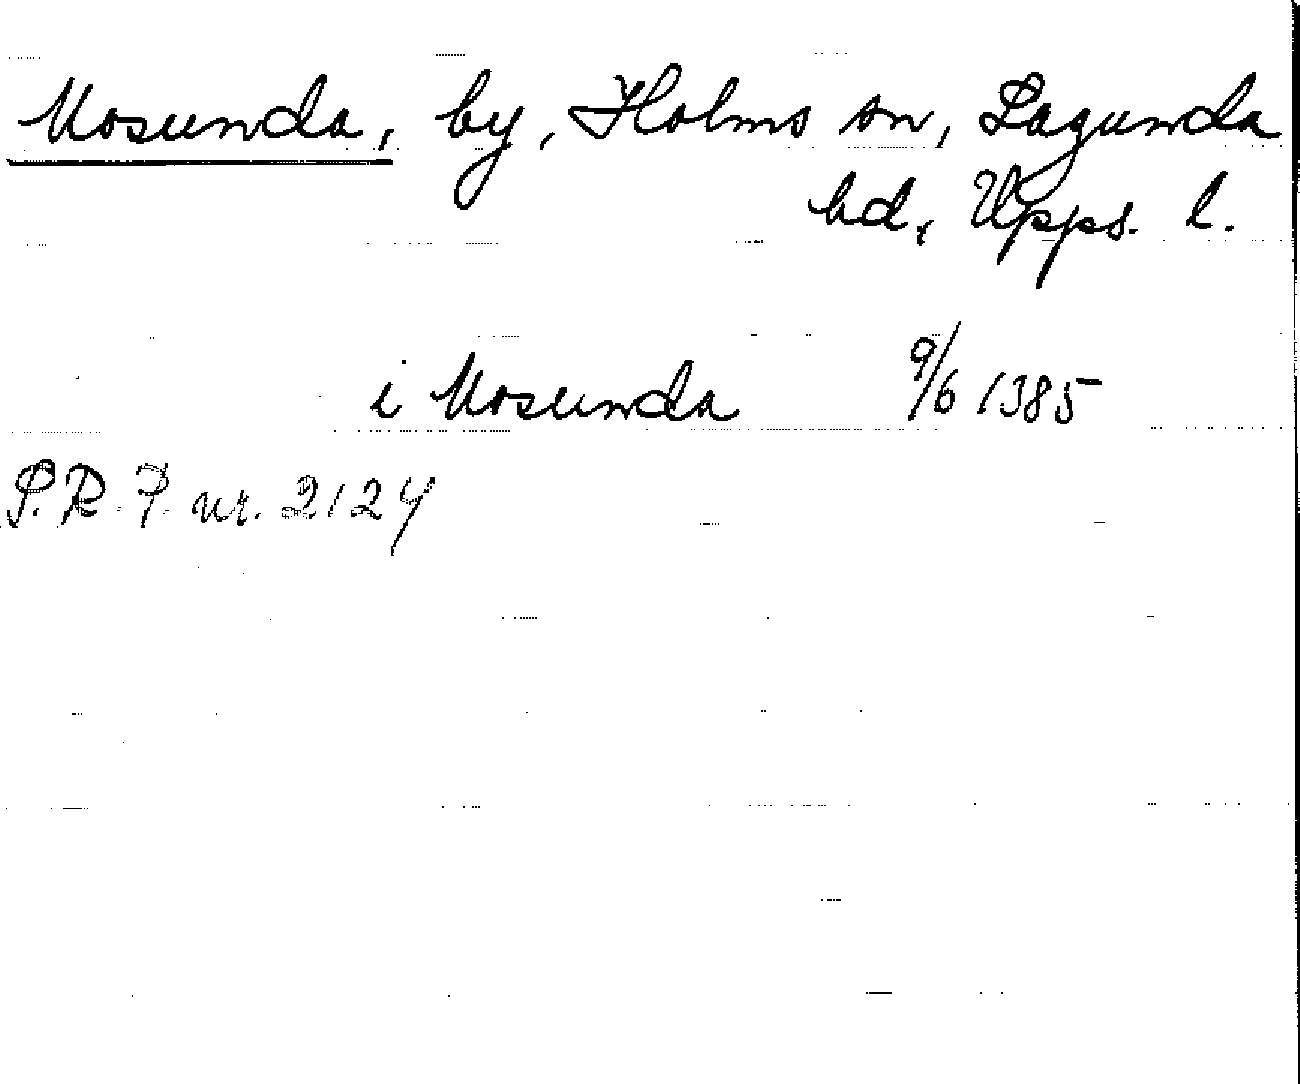 Mosunda, by, Holms sn, Lagunda
hd, Upps. l.
i Mosunda 9/6 1385
S.R.P. nr. 2124